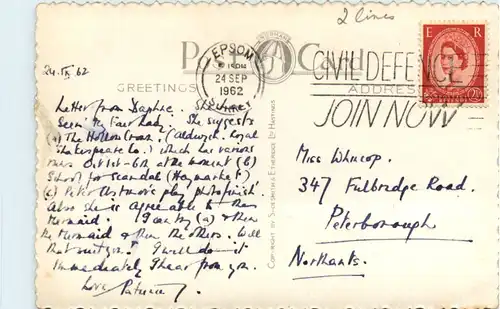 2 lines
Post Card
EPSOM
24 SEP
1962
SURREY
CIVIL DEFENCE
JOIN NOW
E R
2½D
GREETINGS
ADDRESS
24.IX.62
Letter from Daphne. She has
seen My Fair Lady. She suggests
(a) The Hollow Crown (Aldwych. Royal
Shakespeare Co.) which has various
Oct 1st-6th at the moment (b)
School for Scandal (Haymarket)
(c) Peter Ustinov's play photo finish.
Also she is agreeable to the
Mermaid. I can try (a) & then
the Mermaid & then the others. Will
that suit you? I will do it
immediately I hear from you.
Love
COPYRIGHT BY SHOESMITH & ETHERIDGE LTD HASTINGS
Miss Whincop.
347 Fulbridge Road.
Peterborough
Northants.